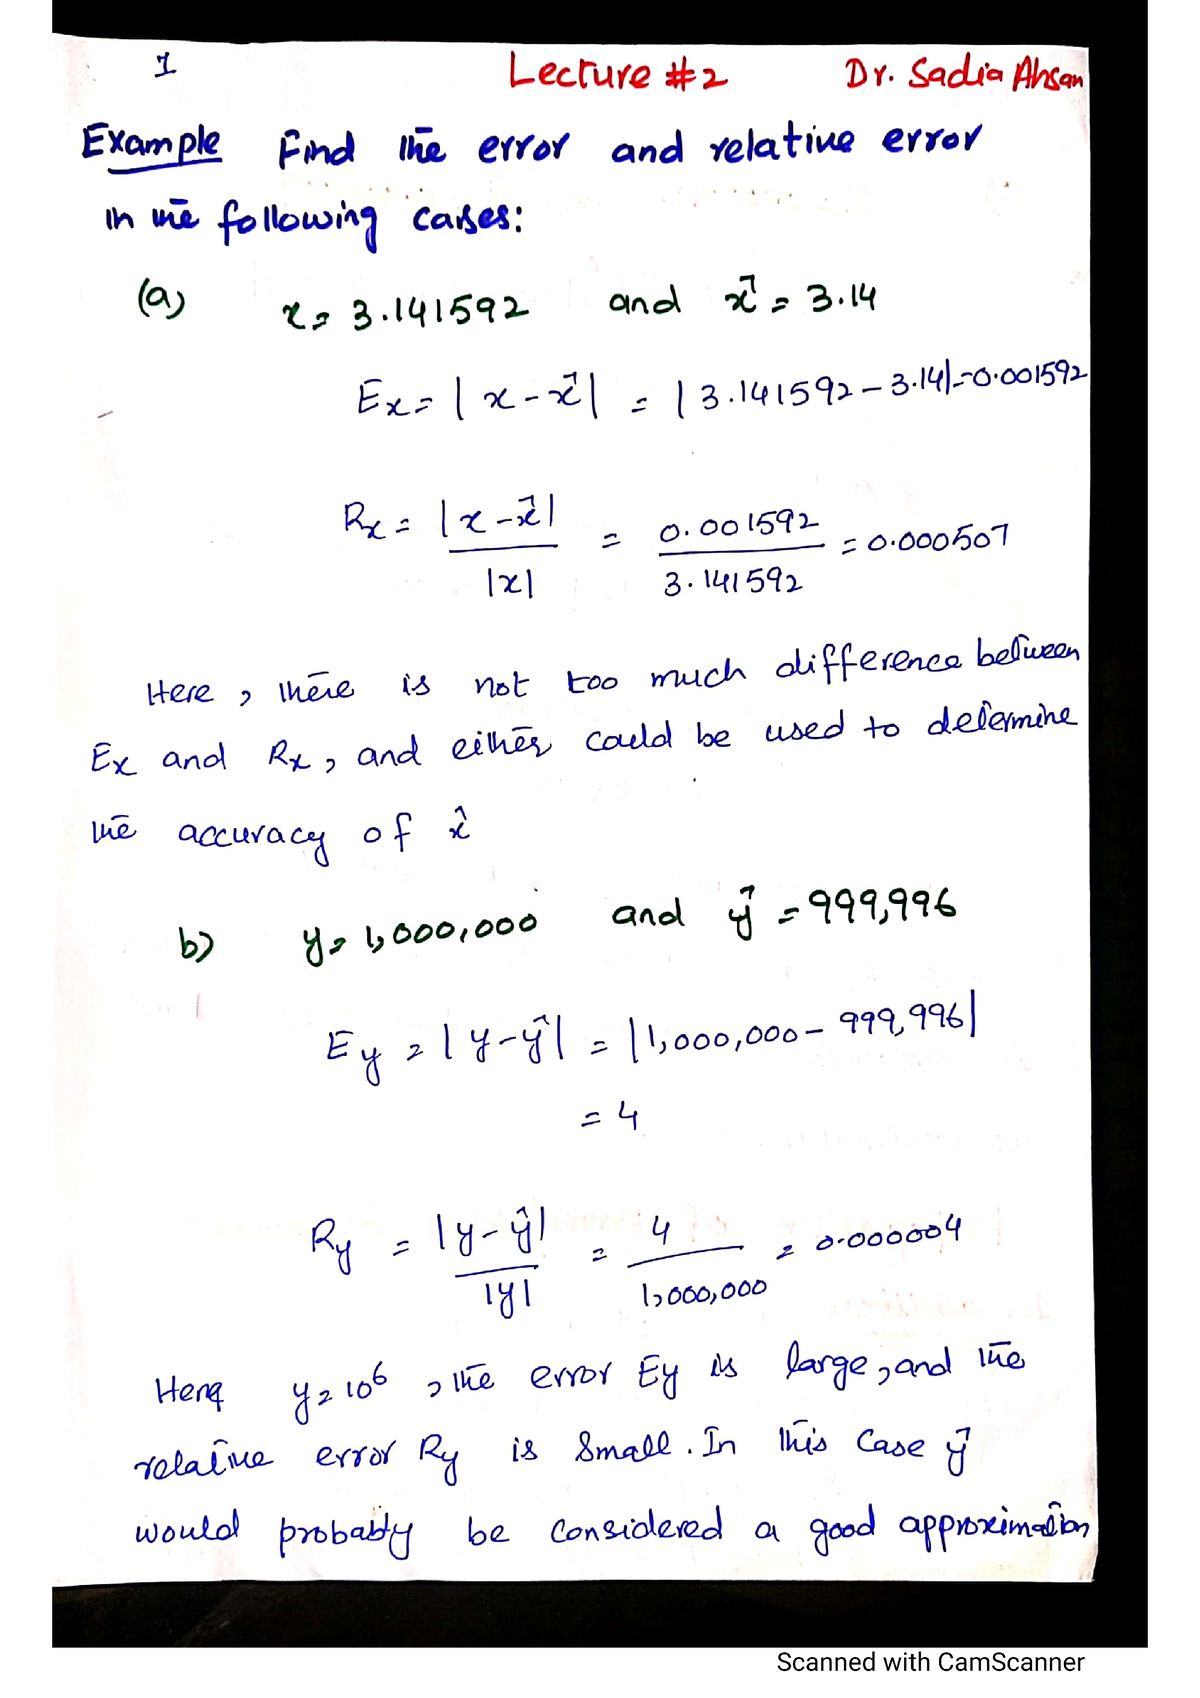 1 Lecture #2 Dr. Sadia Ahsan
Example Find the error and relative error
in the following cases:
(a) x = 3.141592 and x̂ = 3.14
Ex = |x - x̂| = |3.141592 - 3.14| = 0.001592
Rx = |x - x̂| / |x| = 0.001592 / 3.141592 = 0.000507
Here, there is not too much difference between
Ex and Rx, and either could be used to determine
the accuracy of x̂
b) y = 1,000,000 and ŷ = 999,996
Ey = |y - ŷ| = |1,000,000 - 999,996|
= 4
Ry = |y - ŷ| / |y| = 4 / 1,000,000 = 0.000004
Here y = 10⁶, the error Ey is large, and the
relative error Ry is small. In this case ŷ
would probably be considered a good approximation
Scanned with CamScanner